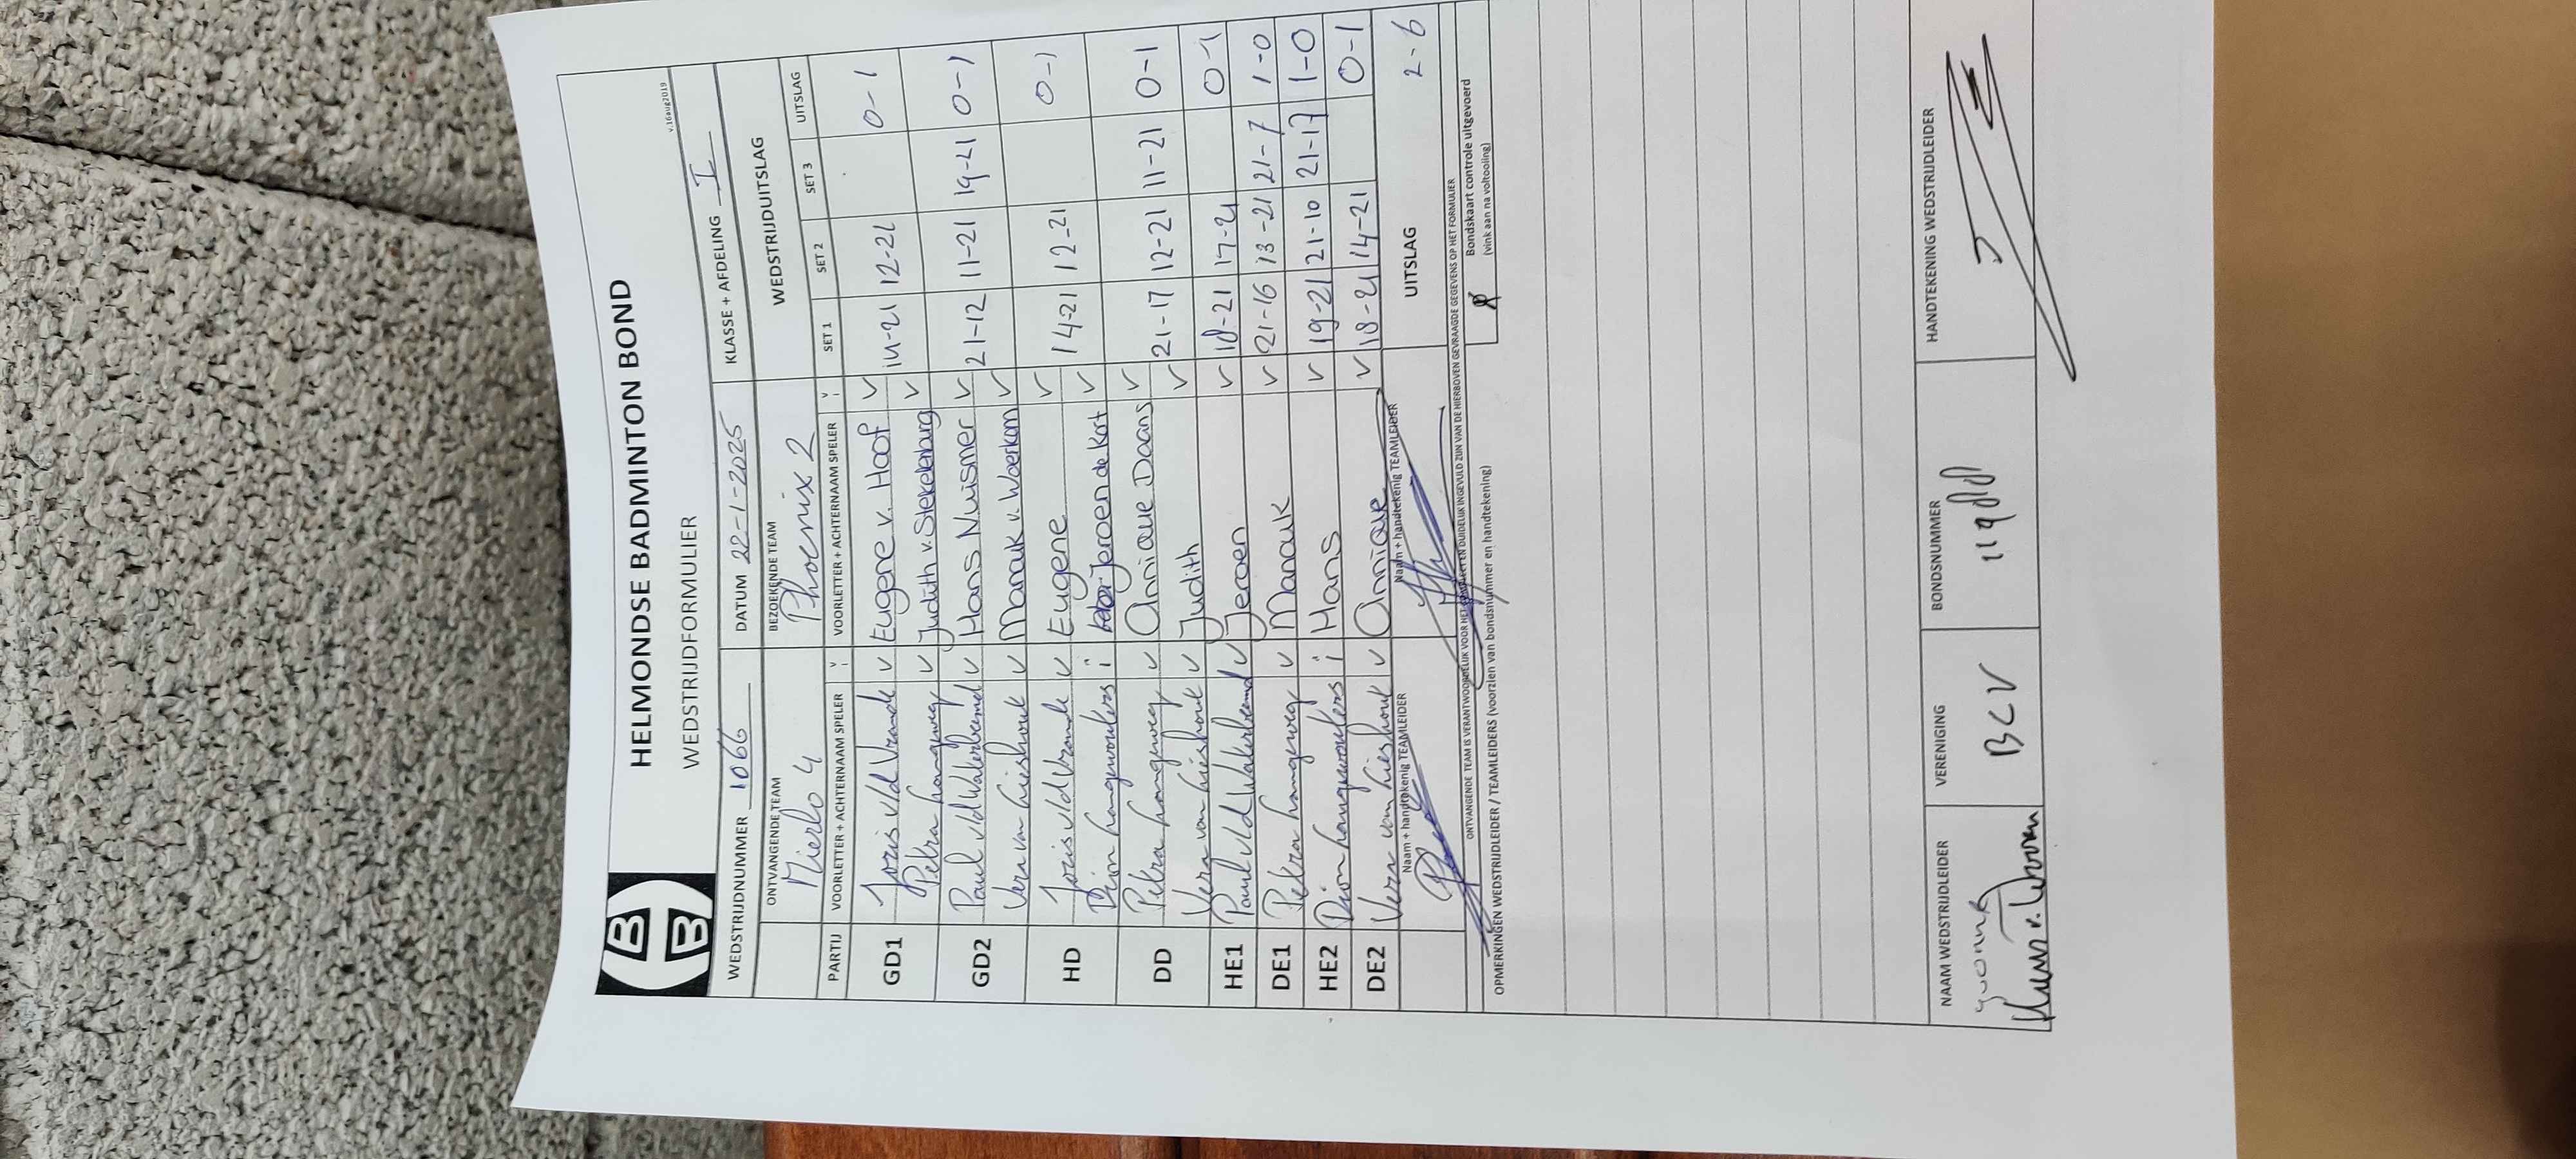 HELMONDSE BADMINTON BOND
WEDSTRIJDFORMULIER
v.16aug2019
WEDSTRIJDNUMMER 1066 DATUM 22-1-2025 KLASSE + AFDELING I
ONTVANGENDE TEAM BEZOEKENDE TEAM WEDSTRIJDUITSLAG
Mierlo 4 Phoenix 2
PARTIJ VOORLETTER + ACHTERNAAM SPELER V/i VOORLETTER + ACHTERNAAM SPELER V/i SET 1 SET 2 SET 3 UITSLAG
GD1 Joris v/d Vrande v Eugene v. Hoof v 14-21 12-21 0-1
Petra v Judith v. Stekelenburg v
GD2 Paul v/d Waterbeemd v Hans Nuismer v 21-12 11-21 19-21 0-1
Vera van Lieshout v v. Woerkom v
HD Joris v/d Vrande v Eugene v 14-21 12-21 0-1
Dion i Jeroen de Kort v
DD Petra v Annique Daans v 21-17 12-21 11-21 0-1
Vera van Lieshout v Judith v
HE1 Paul v/d Waterbeemd v Jeroen v 18-21 17-21 0-1
DE1 Petra v v 21-16 13-21 21-7 1-0
HE2 Dion i Hans v 19-21 21-10 21-17 1-0
DE2 Vera van Lieshout v Annique v 18-21 14-21 0-1
Naam + handtekenig TEAMLEIDER Naam + handtekenig TEAMLEIDER UITSLAG 2-6
ONTVANGENDE TEAM IS VERANTWOORDELIJK VOOR HET EN DUIDELIJK INGEVULD ZIJN VAN DE HIERBOVEN GEVRAAGDE GEGEVENS OP HET FORMULIER
OPMERKINGEN WEDSTRIJDLEIDER / TEAMLEIDERS (voorzien van bondsnummer en handtekening)
Bondskaart controle uitgevoerd
(vink aan na voltooiing)
NAAM WEDSTRIJDLEIDER VERENIGING BONDSNUMMER HANDTEKENING WEDSTRIJDLEIDER
BCV